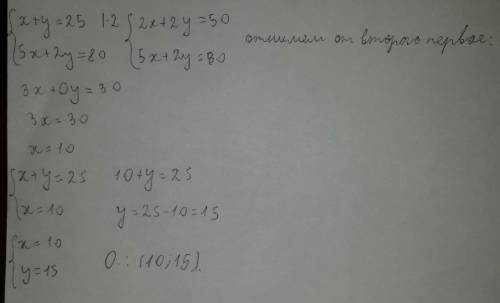 {x+y=25 |·2 {2x+2y=50
{5x+2y=80 {5x+2y=80 отнимем от второго первое:
3x+0y=30
3x=30
x=10
{x+y=25 10+y=25
{x=10 y=25-10=15
{x=10
{y=15 О.: (10;15).